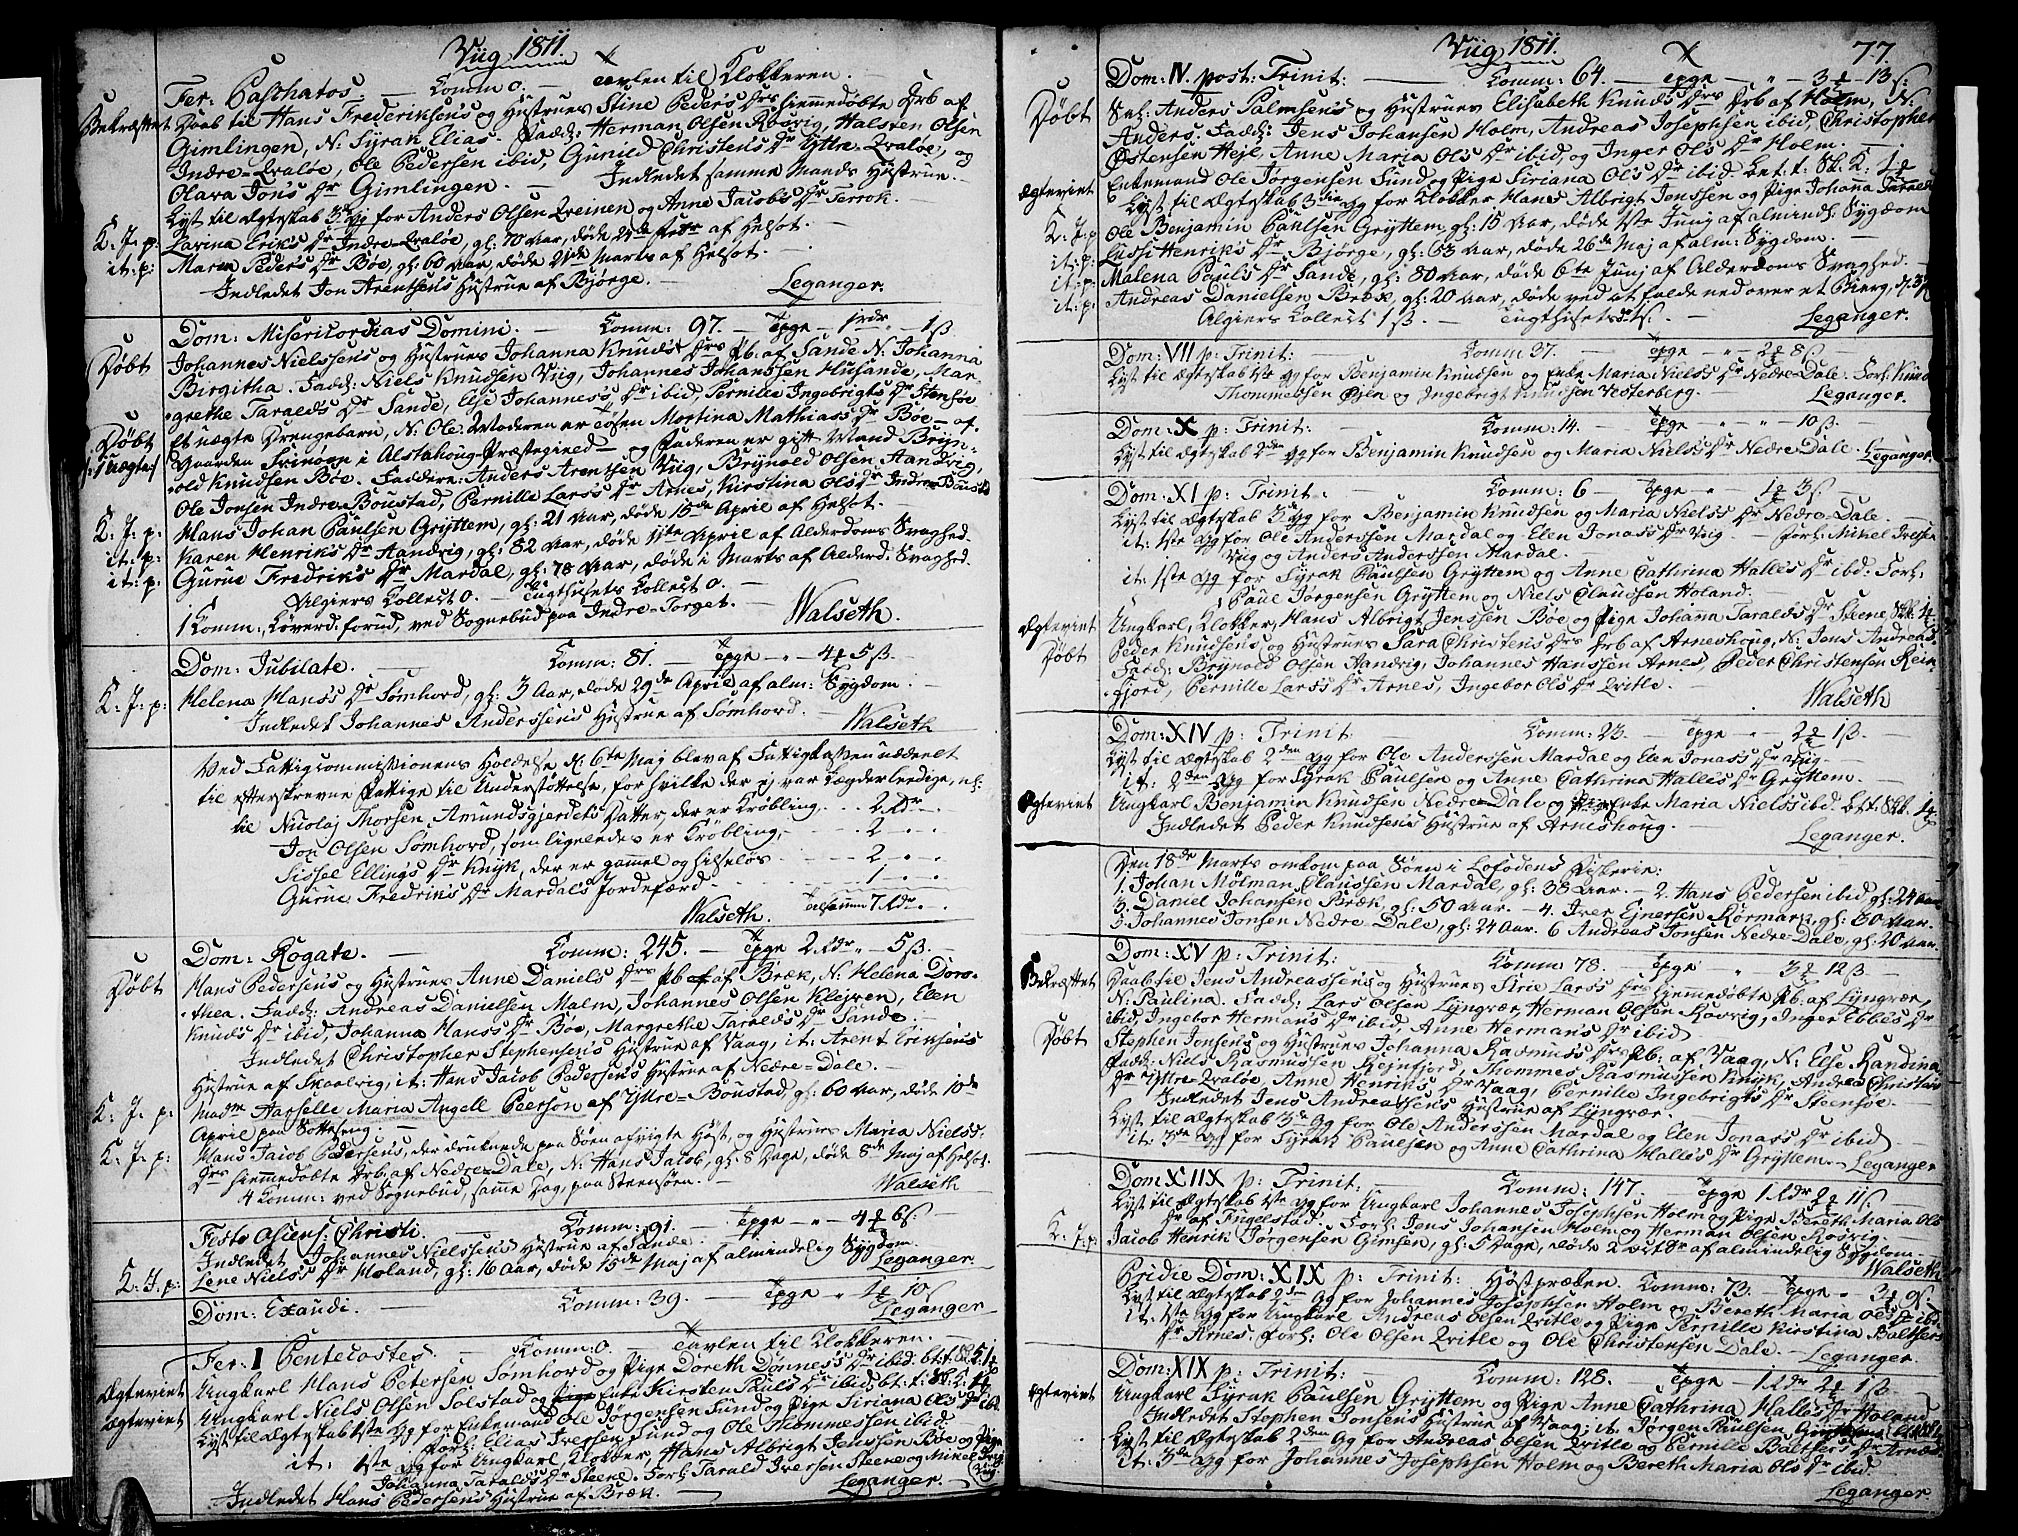 Viig 1811.
Fer: Paschatos. — Comm 0. — Tavlen til Klokkeren. —
Bekræftet Daab til Hans Frederiksens og Hustrues Stine Peders Drs hiemmedøbte Drb af
Gimlingen, N: Syrak Elias. Fadd: Herman Olsen Rørvig, Halsten Olsen
Indre-Qvaløe, Ole Pedersen ibid, Gunild Christens Dr Yttre-Qvaløe, og
Olava Jons Dr Gimlingen. — Indledet samme Mands Hustrue. —
Lyst til Ægteskab 3die Gg for Anders Olsen Qveinen og Anne Jacobs Dr Terrok. —
K: J: p: Karina Eriks Dr Indre-Qvaløe, gl: 70 Aar, døde af Helsot. —
it: p: Maren Peders Dr Bøe, gl: 60 Aar, døde Marts af Helsot. —
Indledet Jon Arentsens Hustrue af Bjørge. — Leganger.
Dom: Misericordias Domini. — Comm: 97. — Tpge — 1 rdr — 1 ß.
Døbt Johannes Nielssens og Hustrues Johanna Knuds Drs Pb. af Sande N: Johanna
Birgitha. Fadd: Niels Knudsen Viig, Johannes Johanssen Husande, Mar-
grethe Taralds Dr Sande, Else Johannes's Dr ibid, Pernille Ingebrigts Dr Stensøe
Døbt Et uægte Drengebarn, N: Ole. Moderen er Tøsen Mortina Mathias's Dr Bøe — af
(: Uægte :) Gaarden Svinøen i Alstahoug Præstegield — og Faderen er gift Mand Bryn-
old Knudsen Bøe. Faddere: Anders Arentsen Viig, Brynold Olsen Aandvig,
Ole Jonsen Indre-Boustad, Pernille Lars's Dr Arnes, Kirstina Ols Dr Indre-Boustad
K: J: p: Hans Johan Paulsen Gryttem, gl: 21 Aar, døde 15de April af Helsot. —
it: p: Karen Henriks Dr Aandvig, gl: 82 Aar, døde 11te April af Alderdoms Svaghed.
it: p: Gurue Fredriks Dr Mardal, gl: 78 Aar, døde i Marts af Alderd. Svaghed.
Algiers Collect 0. — Tugthusets Collect 0.
1 Comm: Løverd: forud, ved Sognebud paa Indre-Torget. — Walseth.
Dom: Jubilate. — Comm: 81. — Tpge — „ — 4 ½ 5 ß. —
K: J: p: Helena Hans's Dr Sømhord, gl: 3 Aar, døde 29de April af alm: Sygdom. —
Indledet Johannes Anderssens Hustrue af Sømhord. — Walseth
Ved Fattigcommissionens Holdelse d. 6te Maj blev af Fattigkassen uddeelt
til efterskrevne Fattige til Understøttelse, for hvilke der ej var Lægder ledige, nl:
til Nicolaj Thorsen Amundsgjordets Datter, der er Krøbling . . . 2 Rdr
Jon Olsen Sømhord, som ligeledes er Krøbling, . . . 2
Sissel Ellings Dr Knyk, der er gammel og hielpeløs — 2
Gurue Fredriks Dr Mardals Jordefærd. — 1
Walseth. 7 Rdr
Dom: Rogate. — Comm: 245. — Tpge 2 Rdr „ — 5 ß. —
Døbt Hans Pedersens og Hustrues Anne Daniels Drs Pb af Bræk, N: Helena Doro-
thea. Fadd: Andreas Danielsen Malm, Johannes Olsen Klejven, Elen
Knuds Dr ibid, Johanna Hans's Dr Bøe, Margrethe Taralds Dr Sande. —
Indledet Christopher Stephensens Hustrue af Vaag, it: Arent Eriksens
Hustrue af Skaalvig, it: Hans Jacob Pedersens Hustrue af Nedre-Dale. —
K: J: p: Madm Harselle Maria Angell Peerson af Yttre-Boustad, gl: 60 Aar, døde 10de
April paa Sotteseng. —
K: J: p: Hans Jacob Pedersens, der druknede paa Søen afvigte Høst, og Hustrues Maria Niels's
Drs hiemmedøbte Drb. af Nedre-Dale, N: Hans Jacob, gl: 8 Dage, døde 8de Maj af Helsot.
4 Comm: ved Sognebud, samme Dag, paa Steensøen. — Walseth
Festo Asiens: Christi. — Comm: 91. — Tpge — „ — 4 ½ 6 ß. —
Indledet Johannes Nielssens Hustrue af Sande. —
K: J. p: Lene Niels's Dr Holand, gl: 16 Aar, døde 15de Maj af almindelig Sygdom. Leganger.
Dom: Exaudi. — Comm: 39. — Tpge „ 1 ½ 10 ß Leganger
Fer: 1 Pentecostes. — Comm: 0. — Tavlen til Klokkeren. —
Ægteviet Ungkarl Hans Petersen Sømhord og Pige Dorethe Dønnes's Dr ibid. bt: t: Sk: K:
Ægteviet Ungkarl Niels Olsen Solstad og Enke Kirsten Pauls Dr ibid, bt: t: Sk. K:
Lyst til Ægteskab 1ste Gg for Enkemand Ole Jørgensen Sund og Pige Siriana Ols Dr ibid.
Forl: Elias Iversen Sund og Ole Thommessen ibid.
it: 1ste Gg for Ungkarl, Klokker, Hans Albrigt Jenssen Bøe og Pige
Johanna Taralds Dr Steene. Forl: Tarald Iversen Steene og Mikel Iver: Viig.
Indledet Hans Pedersens Hustrue af Bræk. — Leganger.
Viig 1811. 77.
Dom: IV. post: Trinit: — Comm: 64. — Tpge — „ — 3 ½ — 13 ß.
Døbt Anders Palmsens og Hustrues Elisabeth Knuds Drs Drb af Holm, N:
Anders. Fadd: Jens Johansen Holm, Andreas Josephsen ibid, Christopher
Østensen Heje, Anne Maria Ols Dr ibid, og Inger Ols Dr Holm. —
Ægteviet Enkemand Ole Jørgensen Sund og Pige Siriana Ols Dr ibid. bet: t: Sk. K: 1 ½
Lyst til Ægteskab 3die Gg for Klokker Hans Albrigt Jenssen og Pige Johanna Taralds
K: J. p Ole Benjamin Paulsen Gryttem, gl: 15 Aar, døde 1ste Junj af almindl: Sygdom
it: p: Lussi Henriks Dr Bjørge, gl: 63 Aar, døde 26de Maj af alm: Sygdom. —
it: p: Malena Pauls Dr Sande, gl: 80 Aar, døde 6te Junj af Alderdoms Svaghed. —
it: p: Andreas Danielsen Bræk, gl: 20 Aar, døde ved at falde ned over et Bierg,
Algiers Collect 1 ß. — Tugthusets — Leganger.
Dom: VII p: Trinit: Comm 37. — Tpge — „ — 2 ½ 8 ß —
Lyst til Ægteskab 1ste Gg for Benjamin Knudsen og Enke Maria Niels's Dr Nedre-Dale. Forl: Knud
Thommessen Øien og Ingebrigt Knudsen Vesterberg. — Leganger.
Dom: X p: Trinit: — Comm: 14. — Tpge — „ — 10 ß.
Lyst til Ægteskab 2den Gg for Benjamin Knudsen og Maria Niels's Dr Nedre-Dale. Leganger.
Dom: XI p: Trinit: Comm: 6 — Tpge „ 1 ½ 3 ß
Lyst til Ægteskab 3die Gg for Benjamin Knudsen og Maria Niels's Dr Nedre-Dale. —
it: 1ste Gg for Ole Anderssen Mardal og Elen Jonas's Dr Viig. — Forl: Mikel Iversen
Viig og Anders Anderssen Mardal. —
it: 1ste Gg for Syrak Paulsen Gryttem og Anne Cathrina Halles Dr ibid: Forl:
Paul Jørgensen Gryttem og Niels Claudsen Holand. —
Ægteviet Ungkarl, Klokker, Hans Albrigt Jenssen Bøe og Pige Johanna Taralds Dr Steene,
Døbt Peder Knudsens og Hustrues Sara Christens Drs Drb af Arneshoug, N: Jens Andreas.
Fadd: Brynold Olsen Aandvig, Johannes Hanssen Arnes, Peder Christensen Rein-
fjord, Pernille Lars's Dr Arnes, Ingebor Ols Dr Qvitle. — Walseth
Dom: XIV p: Trinit — Comm: 23. — Tpge — 2 ½ 1 ß.
Lyst til Ægteskab 2den Gg for Ole Anderssen Mardal og Elen Jonas's Dr Viig. —
it: 2den Gg for Syrak Paulsen og Anne Cathrina Halles Dr Gryttem. —
Ægteviet Ungkarl Benjamin Knudsen Nedre-Dale og Enke Maria Niels's ibid. bet:
Indledet Peder Knudsens Hustrue af Arneshoug. — Leganger.
Den 18de Marts omkom paa Søen i Lofodens Fiskerie:
1. Johan Mølman Claussen Mardal, gl: 38 Aar. — 2. Hans Pedersen ibid gl: 24 Aar
3. Daniel Johansen Bræk, gl: 50 Aar. — 4. Iver Ejnersen Kormark, gl: 30 Aar.
5. Johannes Jonsen Nedre-Dale, gl: 24 Aar. 6 Andreas Jonsen Nedre-Dale, gl: 20 Aar.
Dom: XV p: Trinit: Comm 78. Tpge „ 3 ½ 12 ß —
Bekræftet Daab til Jens Andreassens og Hustrues Sirie Lars's Drs hiemmedøbte Pb. af Lyngvær,
N: Paulina. Fadd: Lars Olsen Lyngvær, Herman Olsen Rørvig, Inger Ebbes Dr
ibid, Ingebor Hermans Dr ibid, Anne Hermans Dr ibid
Døbt Stephen Jonsens og Hustrues Johanna Rasmus's Drs Pb: af Vaag, N: Else Randina
Fadd: Niels Rasmussen Rejnfjord, Thommes Rasmussen Knyk, Andrea Christens
Dr Yttre-Qvaløe, Anne Henriks Dr Vaag, Pernille Ingebrigts Dr Steensøe.
Indledet Jens Andreassens Hustrue af Lyngvær. —
Lyst til Ægteskab 3die Gg for Ole Anderssen Mardal og Elen Jonas's Dr ibid
it: 3die Gg for Syrak Paulsen og Anne Cathrina Halles Dr Gryttem. — Leganger
Dom XIIX p: Trinit: — Comm: 147. Tpge 1 Rdr 2 ½ 11 ß
Lyst til Ægteskab 1ste Gg for Ungkarl Johannes Josephsen Holm og Pige Bereth Maria Ols
Dr af Fugelstad. Forl: Jens Johansen Holm og Herman Olsen Rørvig. —
K: J: p: Jacob Henrik Jørgensen Gimsen, gl: 5 Dage, døde 2 octbr af almindelig Sygdom. — Walseth
Pridie Dom: XIX p: Trinit: Høstpræken. Comm: 73. — Tpge — 3 ½ 9 ß. —
Lyst til Ægteskab 2den Gg for Johannes Josephsen Holm og Bereth Maria Ols Dr ibid.
it: 1ste Gg for Ungkarl Andreas Olsen Qvitle og Pige Pernille Kirstina Balthers
Dr Arnes. Forl: Ole Olsen Qvitle og Ole Christensen Dale. — Leganger.
Dom: XIX p: Trinit: Comm: 128. Tpge — 1 Rdr 2 ½ 1 ß —
Ægteviet Ungkarl Syrak Paulsen Gryttem og Pige Anne Cathrina Halles Dr Holand
Indledet Stephen Jonsens Hustrue af Vaag; it: Jørgen Paulsen
Lyst til Ægteskab 2den Gg for Andreas Olsen Qvitle og Pernille Balthers Dr Arnes
it: 3die Gg for Johannes Josephsen Holm og Bereth Maria Ols Dr ibid.
Leganger.